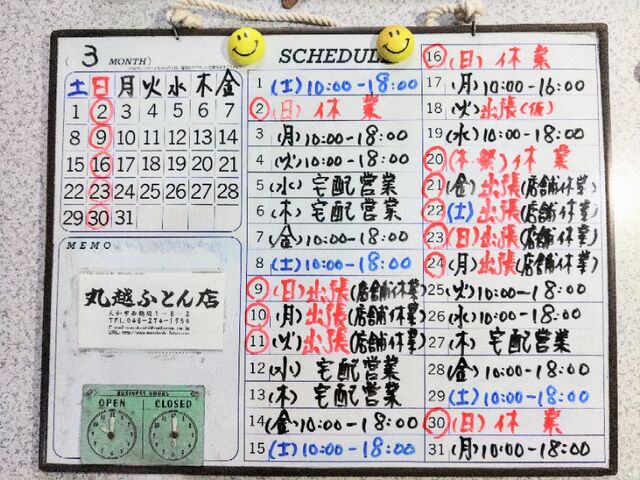 ( 3 MONTH)
土 日 月 火 水 木 金
1 2 3 4 5 6 7
8 9 10 11 12 13 14
15 16 17 18 19 20 21
22 23 24 25 26 27 28
29 30 31
MEMO
丸越ふとん店
大和市西鶴間1-8-2
TEL.046-274-1954
BUSINESS HOURS
OPEN CLOSED
SCHEDULE
1 (土) 10:00-18:00
2 (日) 休業
3 (月) 10:00-18:00
4 (火) 10:00-18:00
5 (水) 宅配営業
6 (木) 宅配営業
7 (金) 10:00-18:00
8 (土) 10:00-18:00
9 (日) 出張 (店舗休業)
10 (月) 出張 (店舗休業)
11 (火) 出張 (店舗休業)
12 (水) 宅配営業
13 (木) 宅配営業
14 (金) 10:00-18:00
15 (土) 10:00-18:00
16 (日) 休業
17 (月) 10:00-16:00
18 (火) 出張(仮)
19 (水) 10:00-18:00
20 (木・祭) 休業
21 (金) 出張 (店舗休業)
22 (土) 出張 (店舗休業)
23 (日) 出張 (店舗休業)
24 (月) 出張 (店舗休業)
25 (火) 10:00-18:00
26 (水) 10:00-18:00
27 (木) 宅配営業
28 (金) 10:00-18:00
29 (土) 10:00-18:00
30 (日) 休業
31 (月) 10:00-18:00